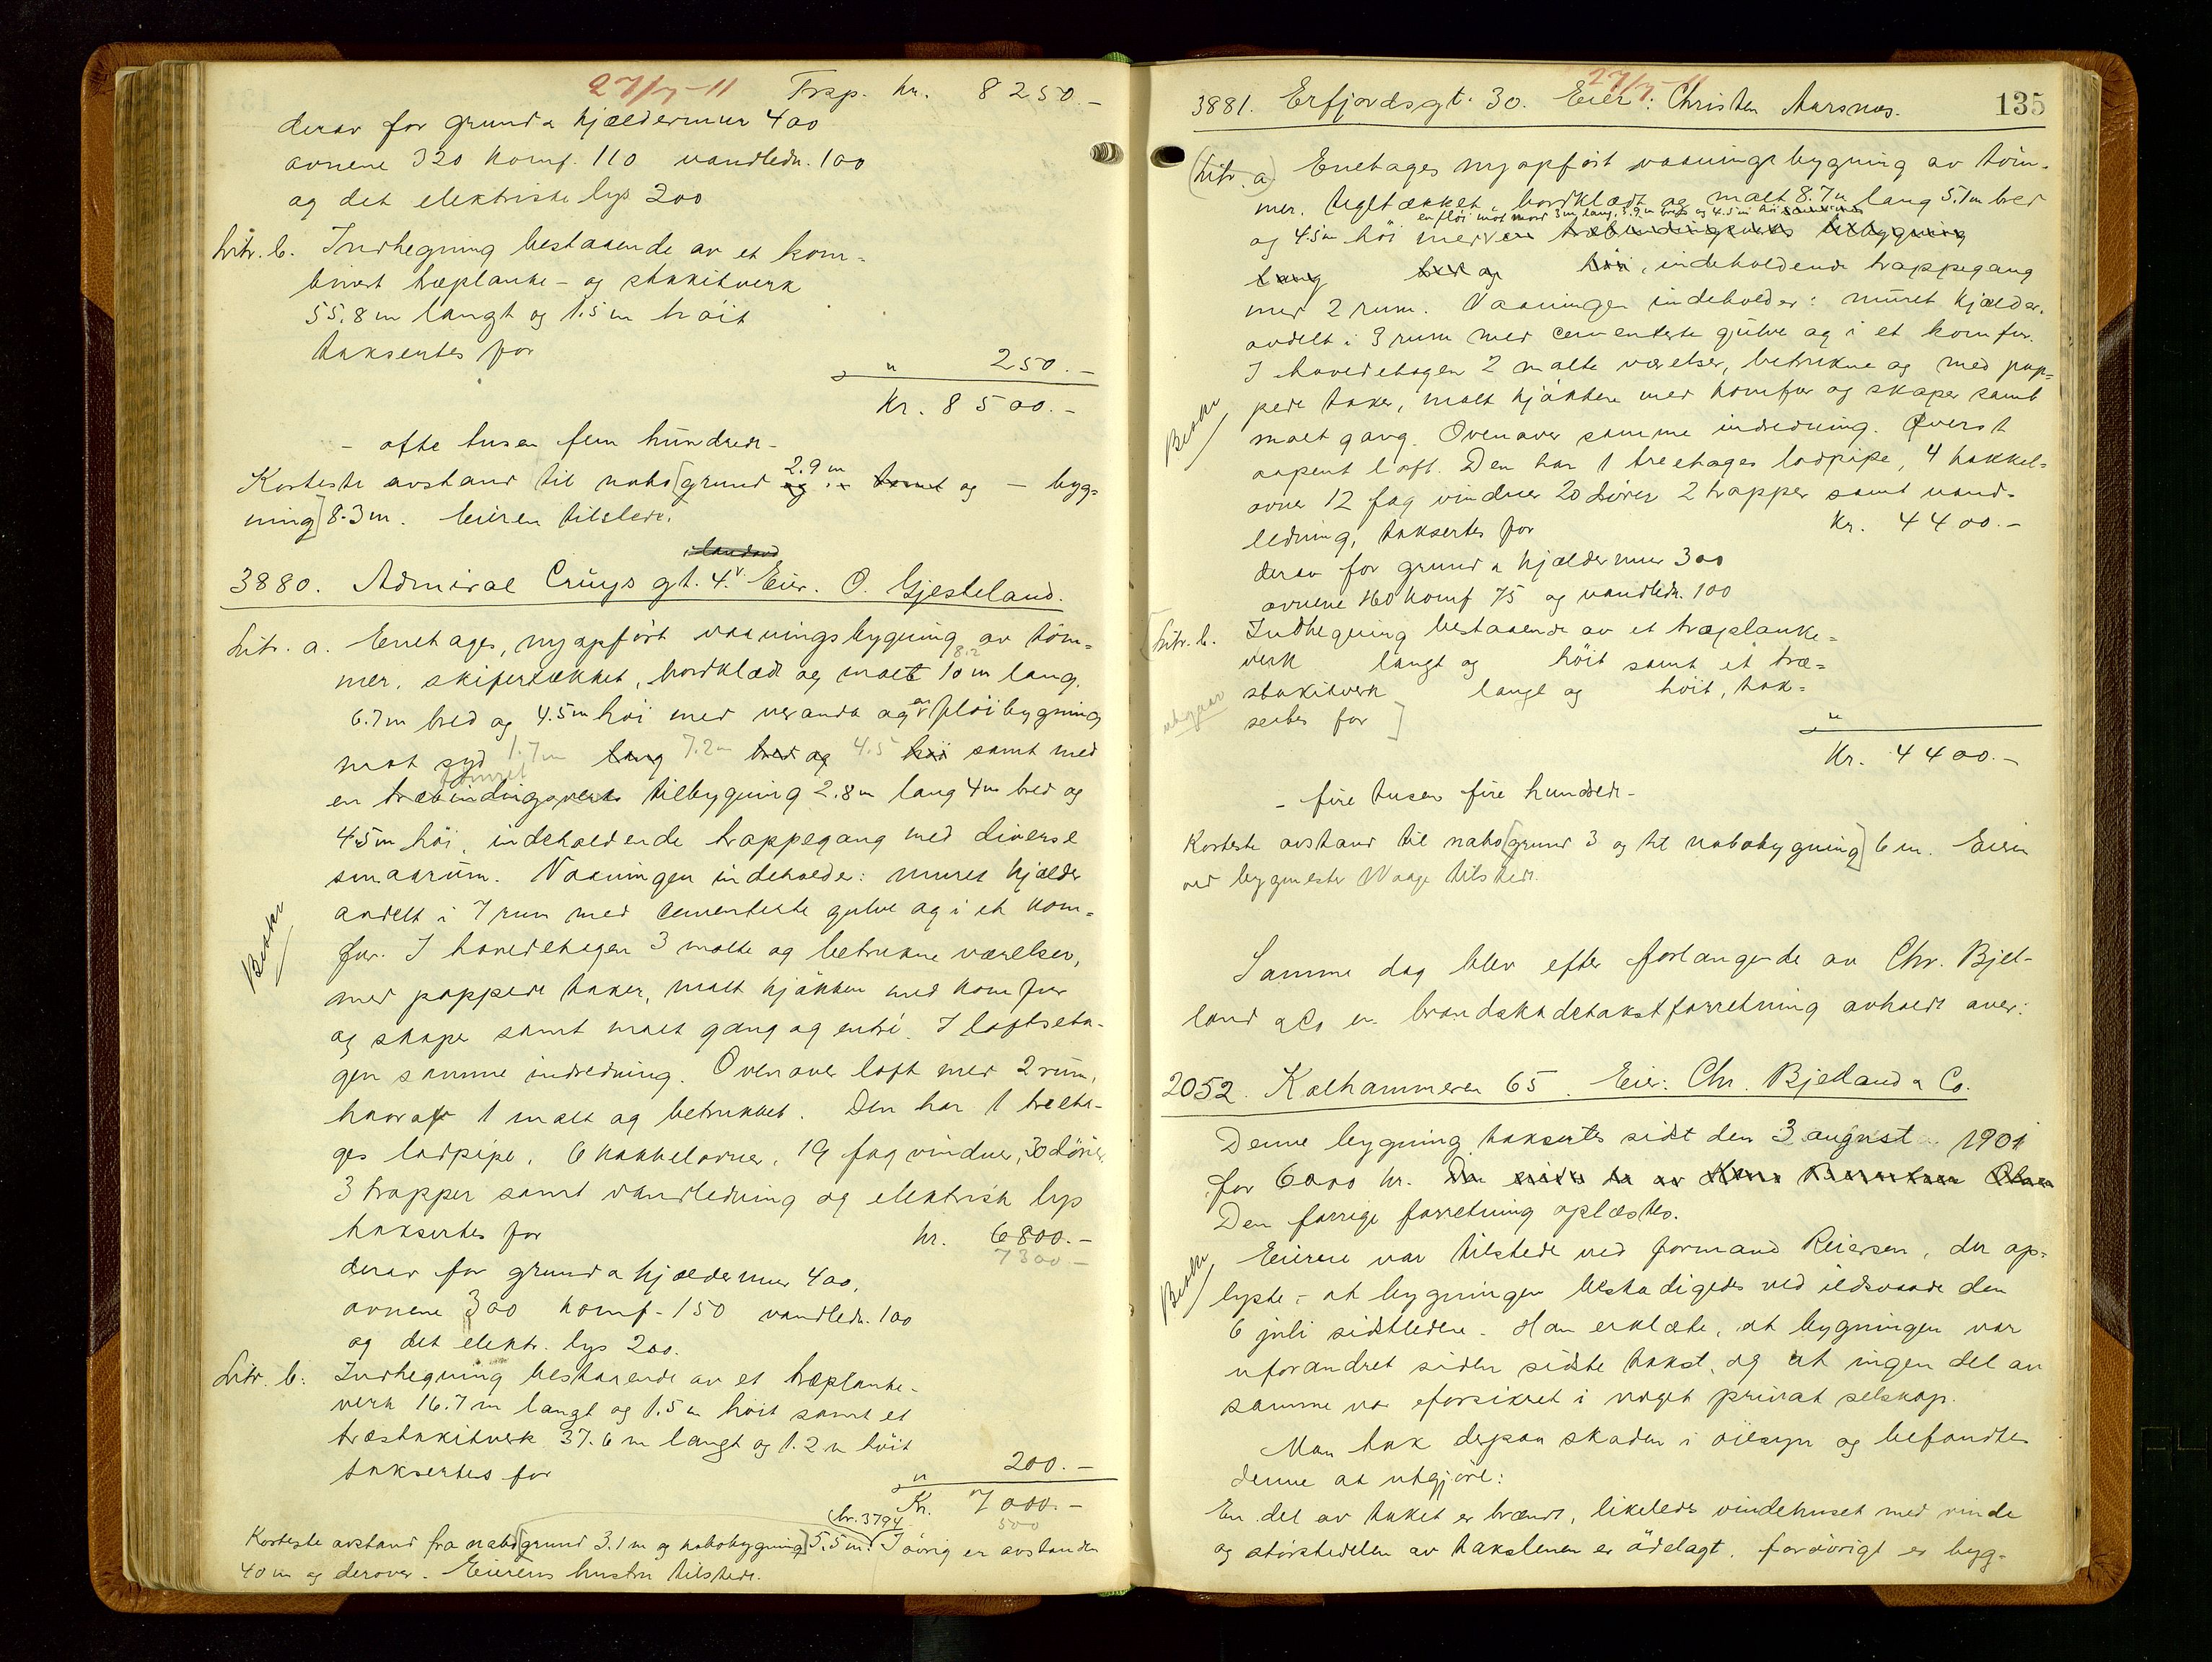 27/7-11 Trsp. kr. 8250.-
derav for grund & kjældermur 400
ovnene 320 komf. 110 vandledn. 100
og det elektriske lys 200
Litr. b. Indhegning bestaaende av et kom-
binert træplanke- og stakitverk
55.8 m langt og 1.5 m høit
taksertes for " 250.-
Kr. 8500.-
- otte tusen fem hundrede -
Korteste avstand til nabo[grund 2.9 m og - byg-
ning] 8.3 m. Eieren tilstede.
3880. Admiral Cruys gt. 4. Eier. O. Gjesteland.
Litr. a. Enetages, nyopført vaaningsbygning av töm-
mer, skifertækket, bordklædt og malt 10 m lang. 8.2
6.7 m bred og 4.5 m høi med veranda og en fløibygning
mot syd 1.7 m lang 7.2 m bred og 4.5 høi samt med
en træbindingsverks tilbygning 2.8 m lang 4 m bred og
tømret
4.5 m høi, indeholdende trappegang med diverse
smaarum. Vaaningen indeholder: muret kjælder
avdelt i 7 rum med cementerte gulve og i et kom-
fur. I hovedetagen 3 malte og betrukne værelser,
med pappede taker, malt kjøkken med komfur
og skaper samt malt gang og entré. I loftseta-
gen samme indredning. Ovenover loft med 2 rum,
hvorav 1 malt og betrukket. Den har 1 treeta-
ges lodpipe, 6 kakkelovner, 19 fag vinduer, 30 dører
3 trapper samt vandledning og elektrisk lys
taksertes for kr. 6800.-
7300-
derav for grund & kjældermur 400,
ovnene 300 komf. 150 vandledn. 100
og det elektr. lys 200.
Litr. b. Indhegning bestaaende av et træplanke-
verk 16.7 m langt og 1.5 m høit samt et
træstakitverk 37.6 m langt og 1.2 m høit
taksertes for " 200.-
Kr. 7000.-
500
(br. 3794
Korteste avstand fra nabo[grund 3.1 m og nabobygning] 5.5 m. I øvrig er avstanden
40 m og derover. Eierens hustru tilstede.
27/7-11
135
3881. Erfjordsgt. 30. Eier: Christen Aarsnes.
(Litr. a) Enetages nyopført vaaningsbygning av töm-
mer, tegltækket, bordklædt og malt 8.7 m lang 5.7 m bred
en fløi mot nord 3 m lang, 3.9 m bred og 4.5 m høi
og 4.5 m høi med en træbindingsverks tilbygning
lang bred og høi, indeholdende trappegang
med 2 rum. Vaaningen indeholder: muret kjælder,
avdelt i 3 rum med cementerte gulve og i et komfur.
I hovedetagen 2 malte værelser, betrukne og med pap-
pede taker, malt kjøkken med komfur og skaper samt
malt gang. Ovenover samme indredning. Øverst
aapent loft. Den har 1 treetages lodpipe, 4 kakkel-
ovner 12 fag vinduer 20 dører 2 trapper samt vand-
ledning, taksertes for Kr. 4400.-
derav for grund & kjældermur 300
ovnene 160 komf 75 og vandledn. 100
[Litr. b. Indhegning bestaaende av et træplanke-
verk langt og høit samt et træ-
stakitverk langt og høit, tak-
utgaar
sertes for ] "
Kr. 4400.-
- fire tusen fire hundrede -
Korteste avstand til nabo[grund 3 og til nabobygning] 6 m. Eieren
ved bygmester Waage tilstede.
Samme dag blev efter forlangende av Chr. Bjel-
land & Co en brandskadetakstforretning avholdt over:
2052. Kalhammeren 65. Eier: Chr. Bjelland & Co.
Denne bygning taksertes sidst den 3 august 1901
for 6000 kr.
Den forrige forretning oplæstes.
Eierene var tilstede ved formand Reiersen, der op-
lyste, at bygningen beskadigedes ved ildsvaade den
6 juli sidstleden. Han erklærte, at bygningen var
uforandret siden sidste takst, og at ingen del av
samme var forsikret i noget privat selskap.
Man tok derpaa skaden i øiesyn og befandtes
denne at utgjøre:
En del av taket er brændt, likeledes vindehuset med vinde
og størstedelen av takstenen er ødelagt. forøvrigt er byg-